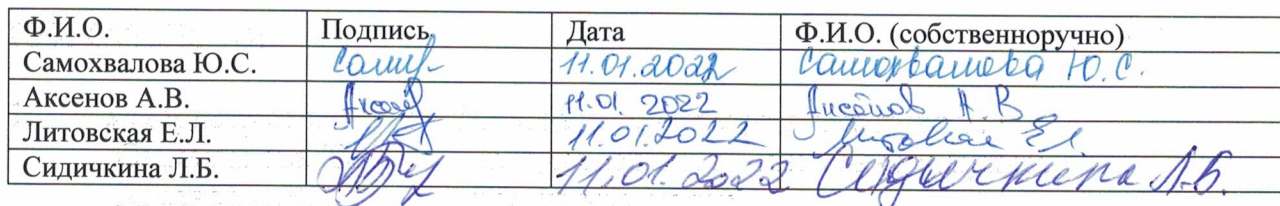 Ф.И.О. Подпись Дата Ф.И.О. (собственноручно)
Самохвалова Ю.С. 11.01.2022 Самохвалова Ю.С.
Аксенов А.В. 11.01.2022 Аксёнов А.В
Литовская Е.Л. 11.01.2022 Литовская Е.Л.
Сидичкина Л.Б. 11.01.2022 Сидичкина Л.Б.